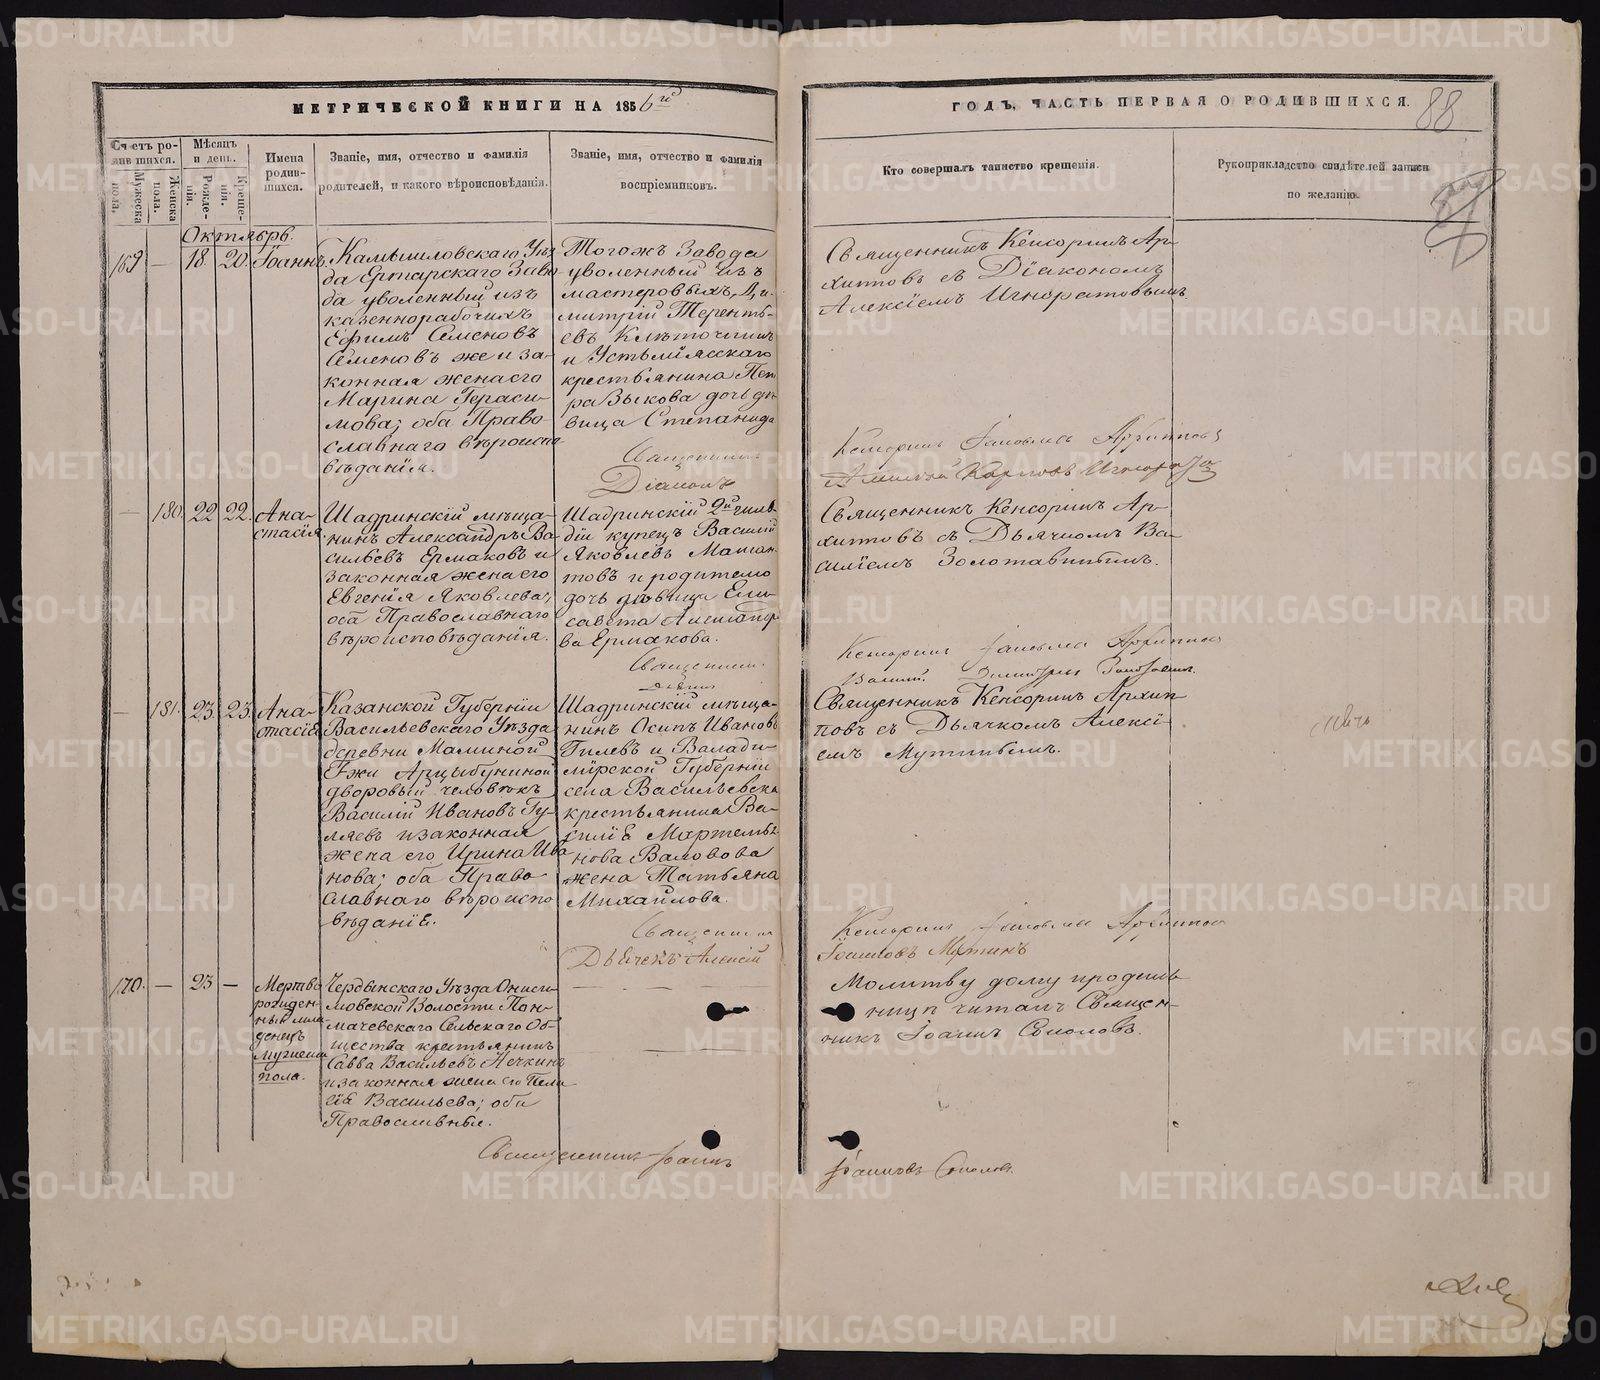 МЕТРИЧЕСКОЙ КНИГИ НА 1856й
ГОДЪ, ЧАСТЬ ПЕРВАЯ О РОДИВШИХСЯ.
88
Счетъ родившихся.
Мужеска пола.
Женска пола.
Мѣсяцъ и день.
Рожденія.
Крещенія.
Имена родившихся.
Званіе, имя, отчество и фамилія
родителей, и какого вѣроисповѣданія.
Званіе, имя, отчество и фамилія
воспріемниковъ.
Кто совершалъ таинство крещенія.
Рукоприкладство свидѣтелей записи
по желанію.
Октябрь.
169 — 18. 20. Іоаннъ
Камышловскаго Уѣз-
да Ертарскаго Заво-
да уволенный изъ
казеннорабочихъ
Ефимъ Семеновъ
Семеновъ же и за-
конная жена его
Марина Гераси-
мова; оба Право
славнаго вѣроиспо-
вѣданія.
Тогожъ Завода
уволенный изъ
мастеровыхъ, Ди-
митрій Теренть-
евъ Клѣточкинъ
и Устьміясскаго
крестьянина Пет
ра Зыкова дочь дѣ-
вица Степанида
Священникъ
Діаконъ
Священникъ Кенсоринъ Ар-
хиповъ съ Діакономъ
Алексіемъ Игноратовымъ
Кенсоринъ Іаковлевъ Архиповъ
— 180. 22 22. Ана-
стасія.
Шадринскій мѣща-
нинъ Александръ Ва-
сильевъ Ермаковъ и
законная жена его
Евгенія Яковлева,
оба Православнаго
вѣроисповѣданія.
Шадринскій 2й гиль-
діи купецъ Василій
Яковлевъ
товъ и родителю
дочь дѣвица Ели-
савета Александро-
ва Ермакова.
Священникъ
Дьячекъ
Священникъ Кенсоринъ Ар-
хиповъ съ Дьячкомъ Ва-
силіемъ Золотавинымъ.
Кенсоринъ Іаковлевъ Архиповъ
— 181. 23. 23. Ана-
стасія
Казанской Губерніи
Васильевскаго Уѣзда
деревни Маминой
Гжи Арцыбушиной
дворовый человѣкъ
Василій Ивановъ Гу-
ляевъ и законная
жена его Ирина Ива
нова; оба Право
славнаго вѣроиспо
вѣданіе.
Шадринскій мѣща-
нинъ Осипъ Ивановъ
Гилевъ и Валади-
мірской Губерніи
села Васильевска
крестьянина Ва-
силіе Мартемья
нова Валовова
жена Татьяна
Михайлова.
Священникъ
Дьячекъ Алексій
Священникъ Кенсоринъ Архип-
повъ съ Дьячкомъ Алексі-
емъ
Кенсоринъ Іаковлевъ Архиповъ
170. — 23 — Мертво
рожден-
ный мла-
денецъ
мужеска
пола.
Чердынскаго Уѣзда Ониси-
мовской Волости Пон-
мачевскаго Сельскаго Об-
щества крестьянинъ
Савва Васильевъ Нечкинъ
и законная жена его Пела
гія Васильева; оба
Православные.
Молитву дому и родиль-
ницѣ читалъ Священ-
никъ Іоаннъ Соколовъ.
Священникъ Іоаннъ
Іоанновъ Соколовъ
METRIKI.GASO-URAL.RU